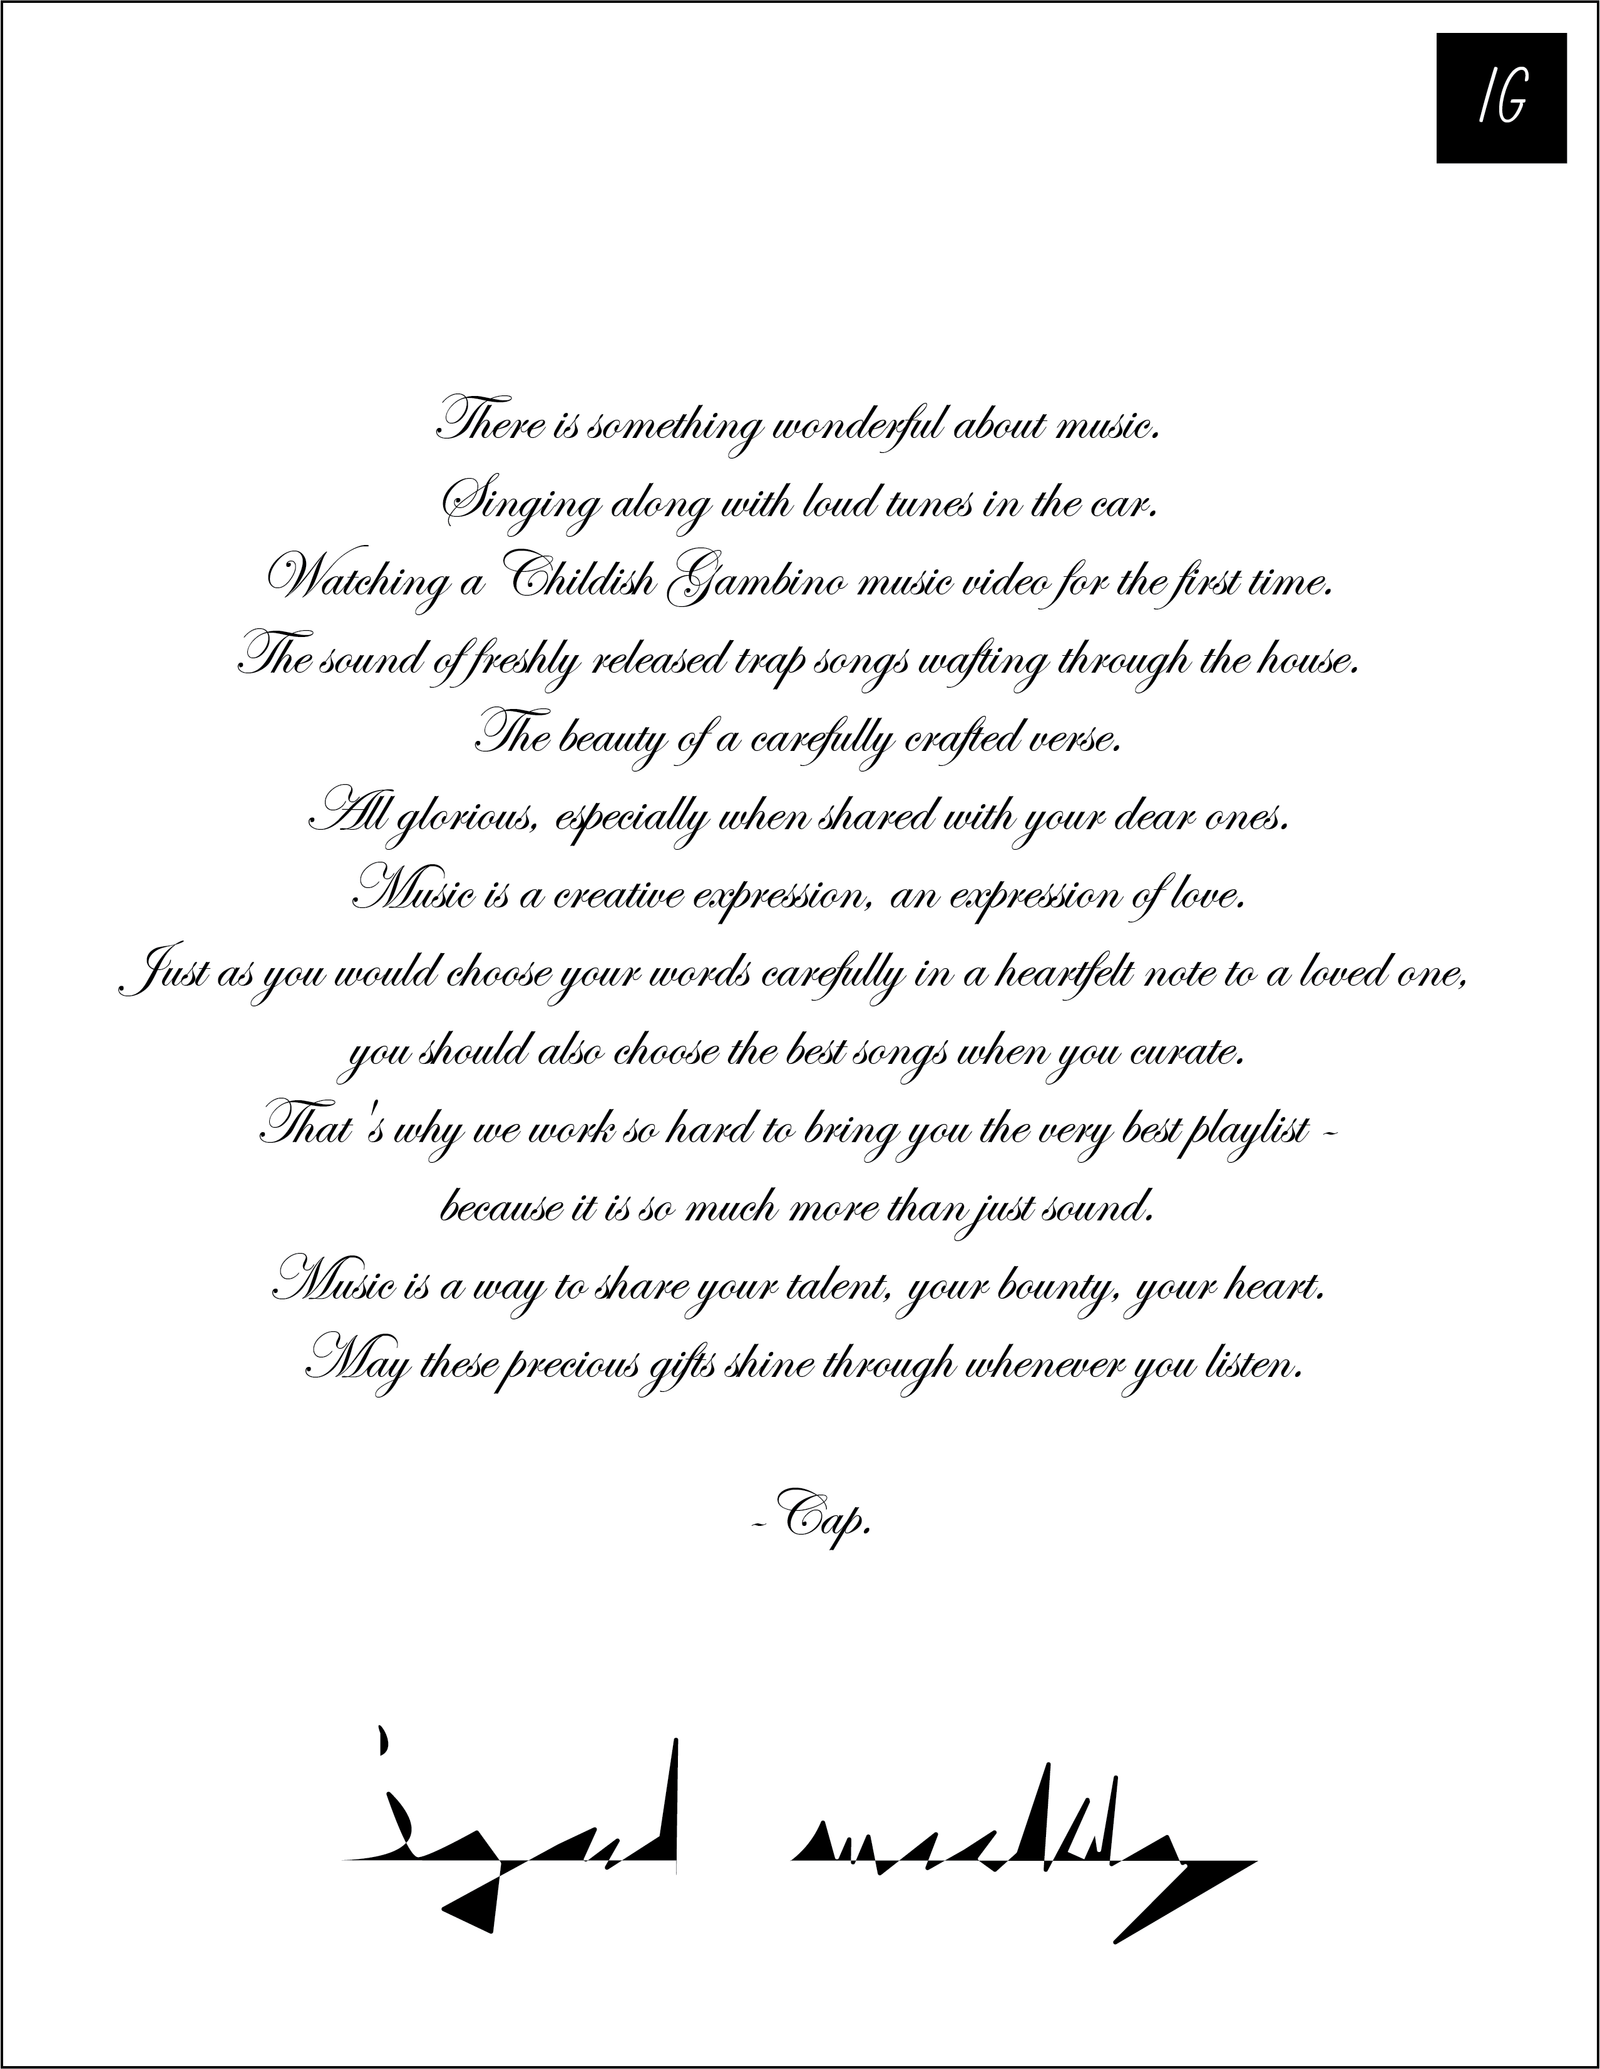 IG
There is something wonderful about music.
Singing along with loud tunes in the car.
Watching a Childish Gambino music video for the first time.
The sound of freshly released trap songs wafting through the house.
The beauty of a carefully crafted verse.
All glorious, especially when shared with your dear ones.
Music is a creative expression, an expression of love.
Just as you would choose your words carefully in a heartfelt note to a loved one,
you should also choose the best songs when you curate.
That's why we work so hard to bring you the very best playlist -
because it is so much more than just sound.
Music is a way to share your talent, your bounty, your heart.
May these precious gifts shine through whenever you listen.
- Cap.